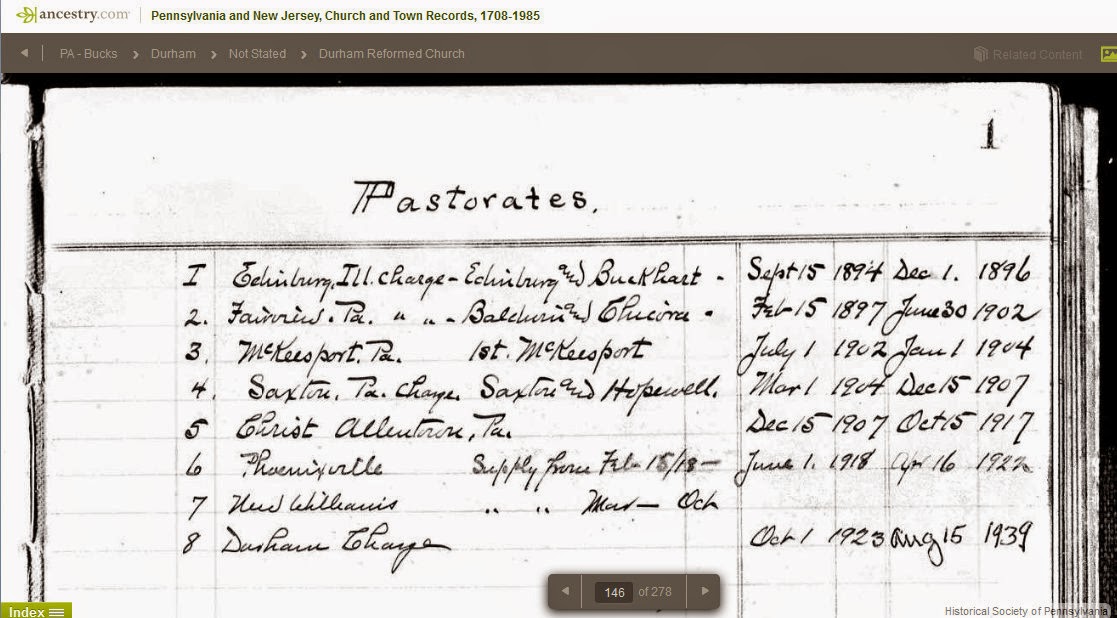 ancestry.com Pennsylvania and New Jersey, Church and Town Records, 1708-1985
PA - Bucks Durham Not Stated Durham Reformed Church Related Content
1
Pastorates.
I Edinburg, Ill. Charge - Edinburg and Buckhart - Sept 15 1894 Dec 1. 1896
2. Fairview. Pa. " " - Baldwin and Chicora - Feb 15 1897 June 30 1902
3. McKeesport, Pa. 1st. McKeesport July 1 1902 Jan 1 1904
4. Saxton, Pa. Charge. Saxton and Hopewell. Mar 1 1904 Dec 15 1907
5 Christ Allentown, Pa. Dec 15 1907 Oct 15 1917
6 Phoenixville Supply from Feb 15/18 - June 1. 1918 Apr 16 1922
7 New Williams " " Mar - Oct
8 Durham Charge Oct 1 1923 Aug 15 1939
146 of 278
Index
Historical Society of Pennsylvania